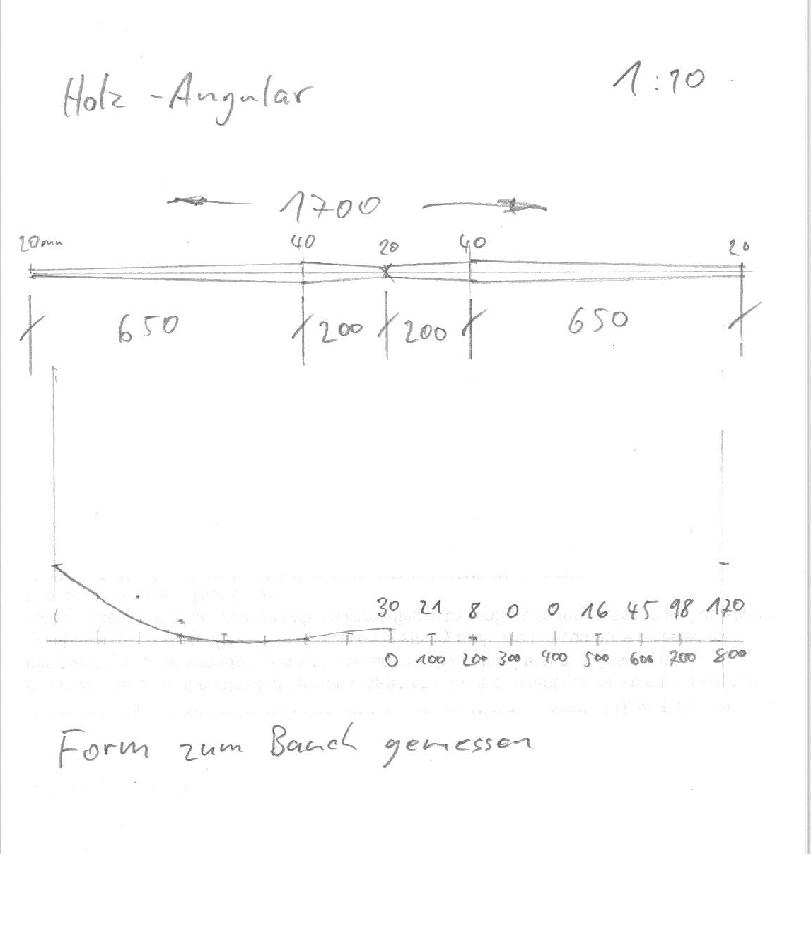 Holz - Angular 1:10
1700
20mm 40 20 40 20
650 200 200 650
30 21 8 0 0 16 45 98 170
0 100 200 300 400 500 600 700 800
Form zum Bauch gemessen